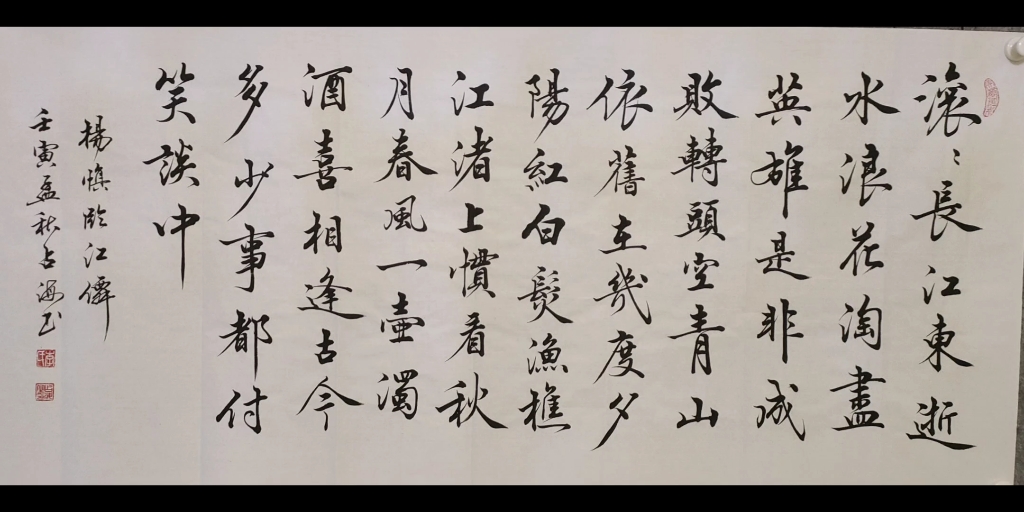 滾〻長江東逝
水浪花淘盡
英雄是非成
敗轉頭空青山
依舊在幾度夕
陽紅白髮漁樵
江渚上慣看秋
月春風一壺濁
酒喜相逢古今
多少事都付
笑談中
楊慎臨江僊
壬寅孟秋占海书